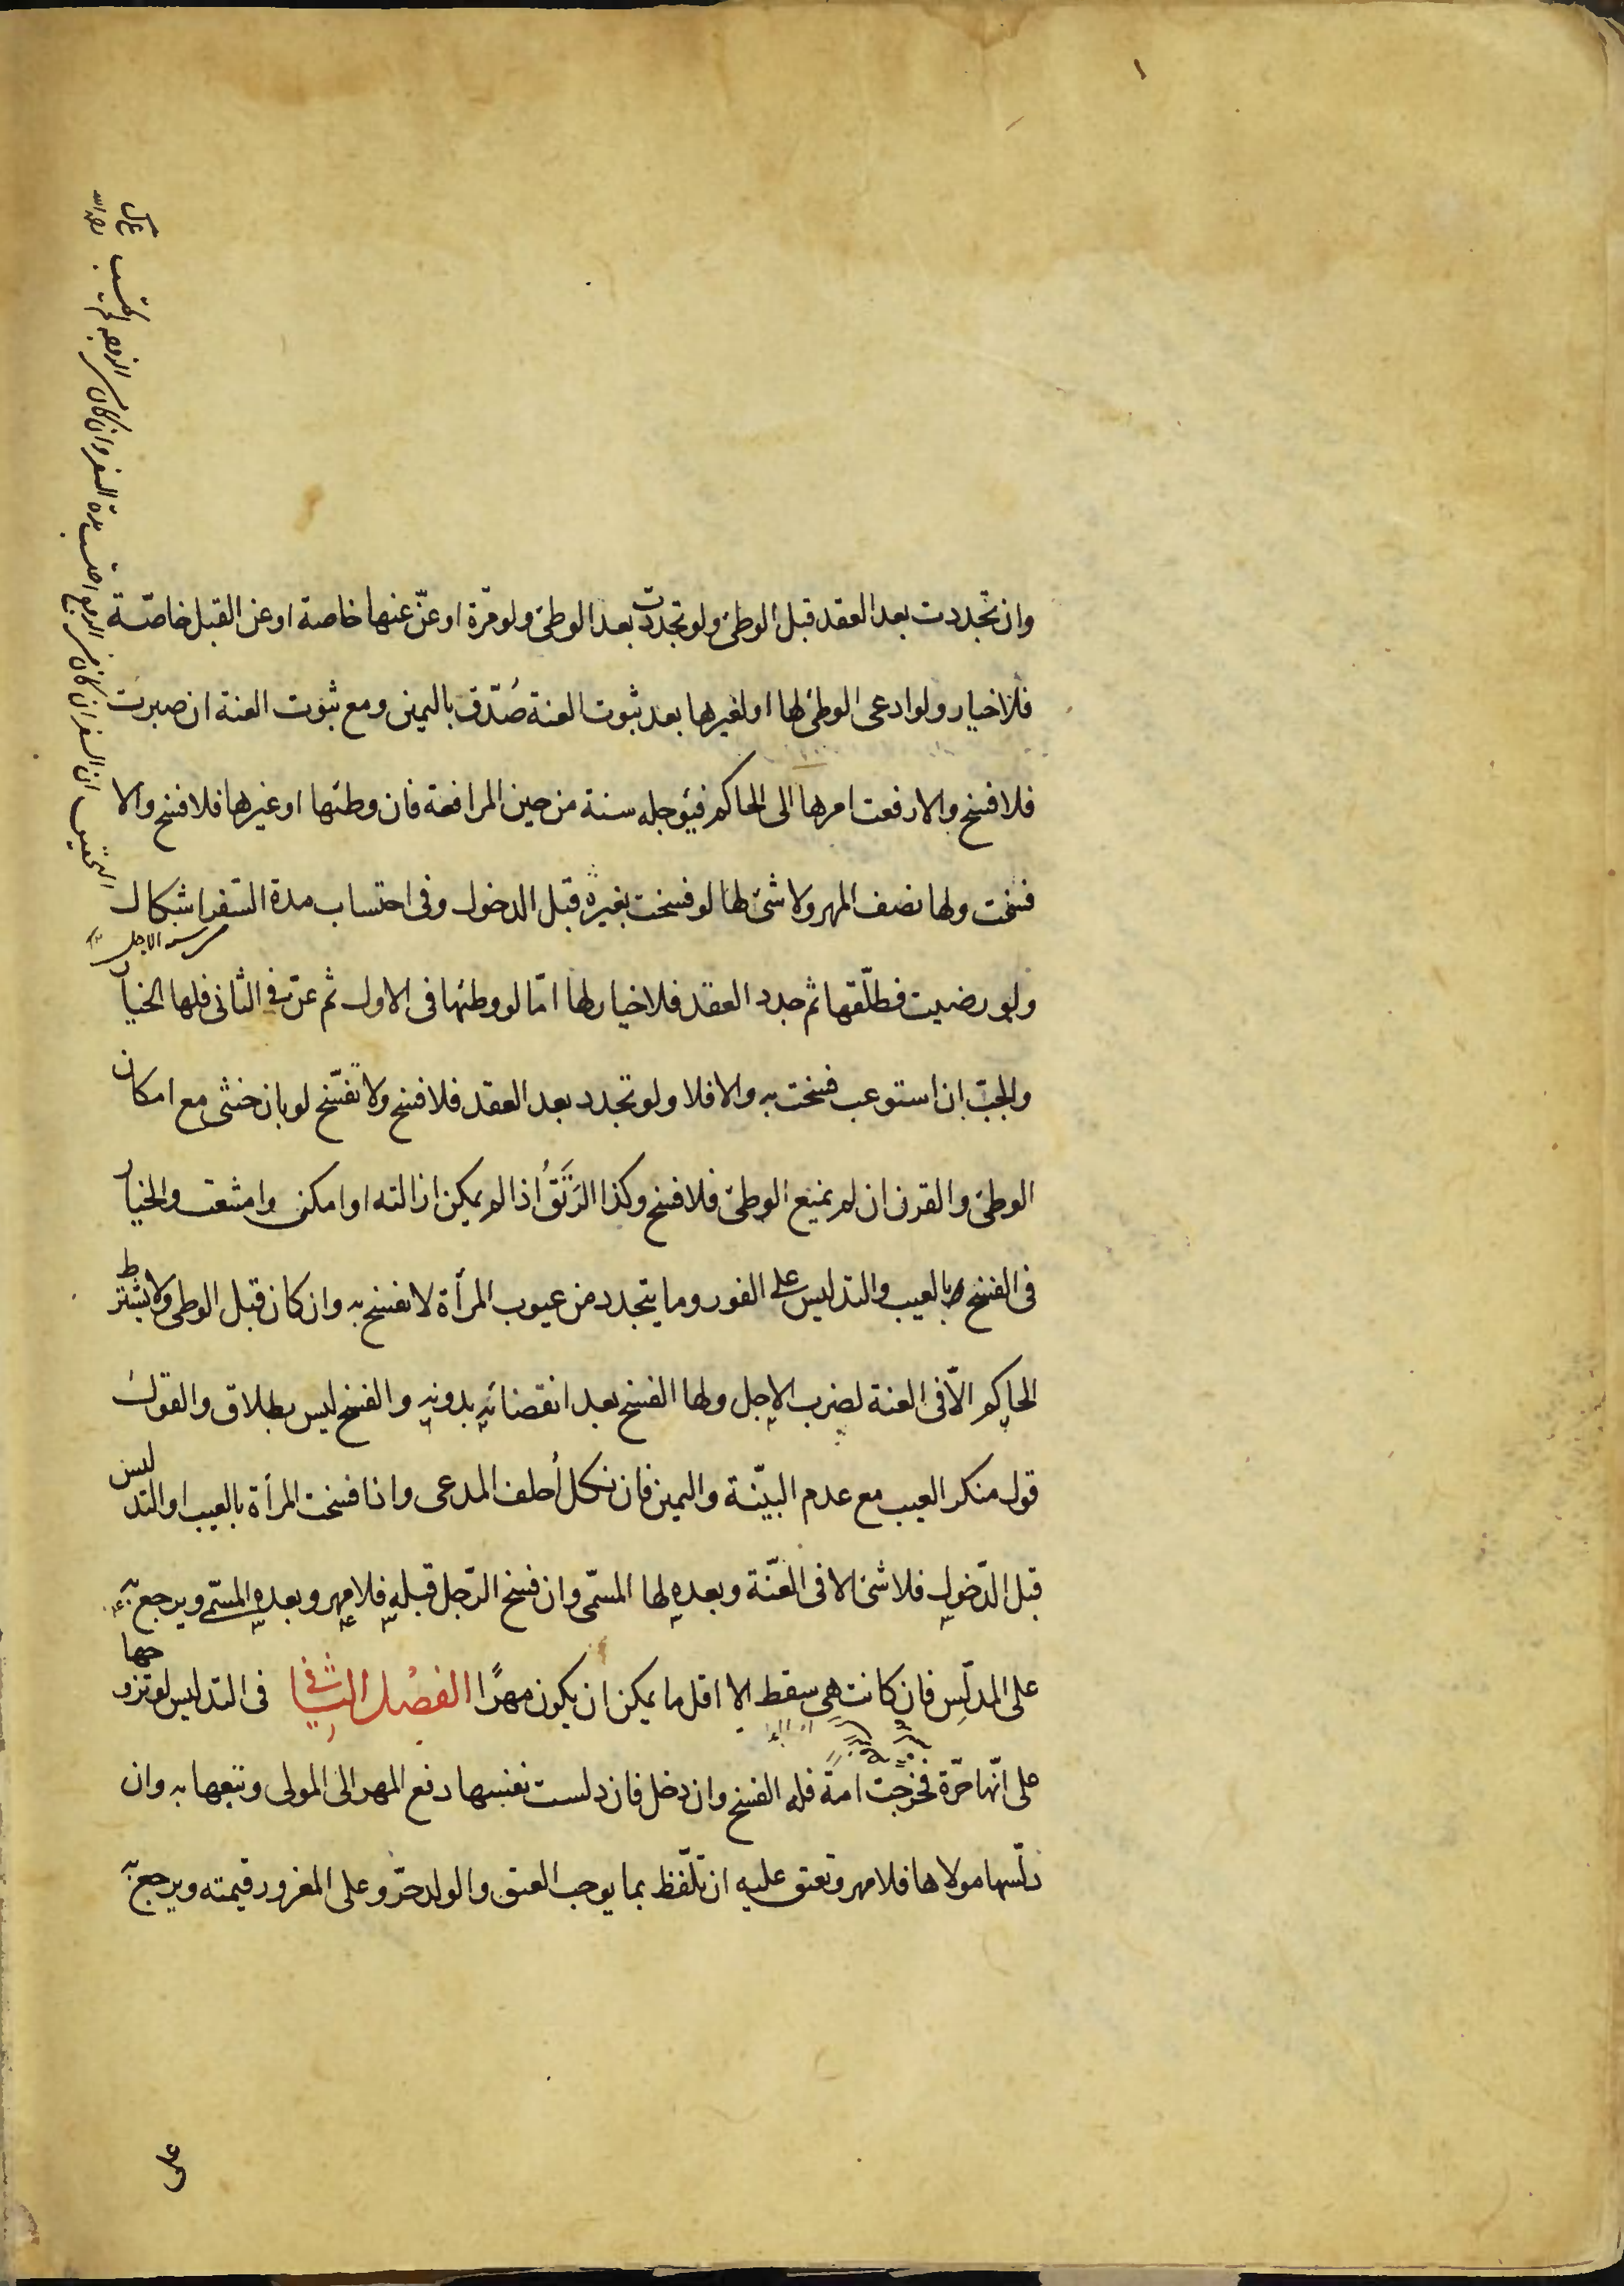 وان تجددت بعد العقد قبل الوطئ ولو تجددت بعد الوطئ ولو مرة او عنّ عنها خاصة او عن القبل خاصّة
فلا خيار ولو ادعى الوطئ لها او لغيرها بعد ثبوت العنة صُدّق باليمين ومع ثبوت العنة ان صبرت
فلا فسخ والا رفعت امرها الى الحاكم فيؤجله سنة من حين المرافعة فان وطئها او غيرها فلا فسخ والا
فسخت ولها نصف المهر ولا شئ لها لو فسخت بغيره قبل الدخول وفى احتساب مدة السّفر اشكال
ولو رضيت فطلّقها ثم جدد العقد فلا خيار لها امّا لو وطئها فى الاول ثم عنّ فى الثانى فلها الخيار
والجبّ ان استوعب فسخت به والا فلا ولو تجدد بعد العقد فلا فسخ ولا تفسخ لو بان خنثى مع امكان
الوطئ والقرن ان لم يمنع الوطئ فلا فسخ وكذا الرَتَقُ اذا لم يمكن ازالته او امكن وامتنعت والخيار
فى الفسخ بالعيب والتدليس على الفور وما يتجدد من عيوب المرأة لا يفسخ به وان كان قبل الوطى ولا يشترط
الحاكم الّا فى العنة لضرب الاجل ولها الفسخ بعد انقضائه بدونه والفسخ ليس بطلاق والقول
قول منكر العيب مع عدم البيّنة واليمين فان نكل أحلف المدعى واذا فسخت المرأة بالعيب او التدليس
قبل الدّخول فلا شئ الا فى العنّة وبعده لها المسمّى وان فسخ الرّجل قبله فلا مهر وبعده المسمّى ويرجع به
على المدلّس فان كانت هى سقط الا اقل ما يمكن ان يكون مهرًا الفصل الثانى فى التدليس لو تزوجها
على انّها حرّة فخرجت امة فله الفسخ وان دخل فان دلست نفسها دفع المهر الى المولى وتبعها به وان
دلّسها مولاها فلا مهر وتعتق عليه ان تلّفظ بما يوجب العتق والولد حرّ وعلى المغرور قيمته ويرجع به